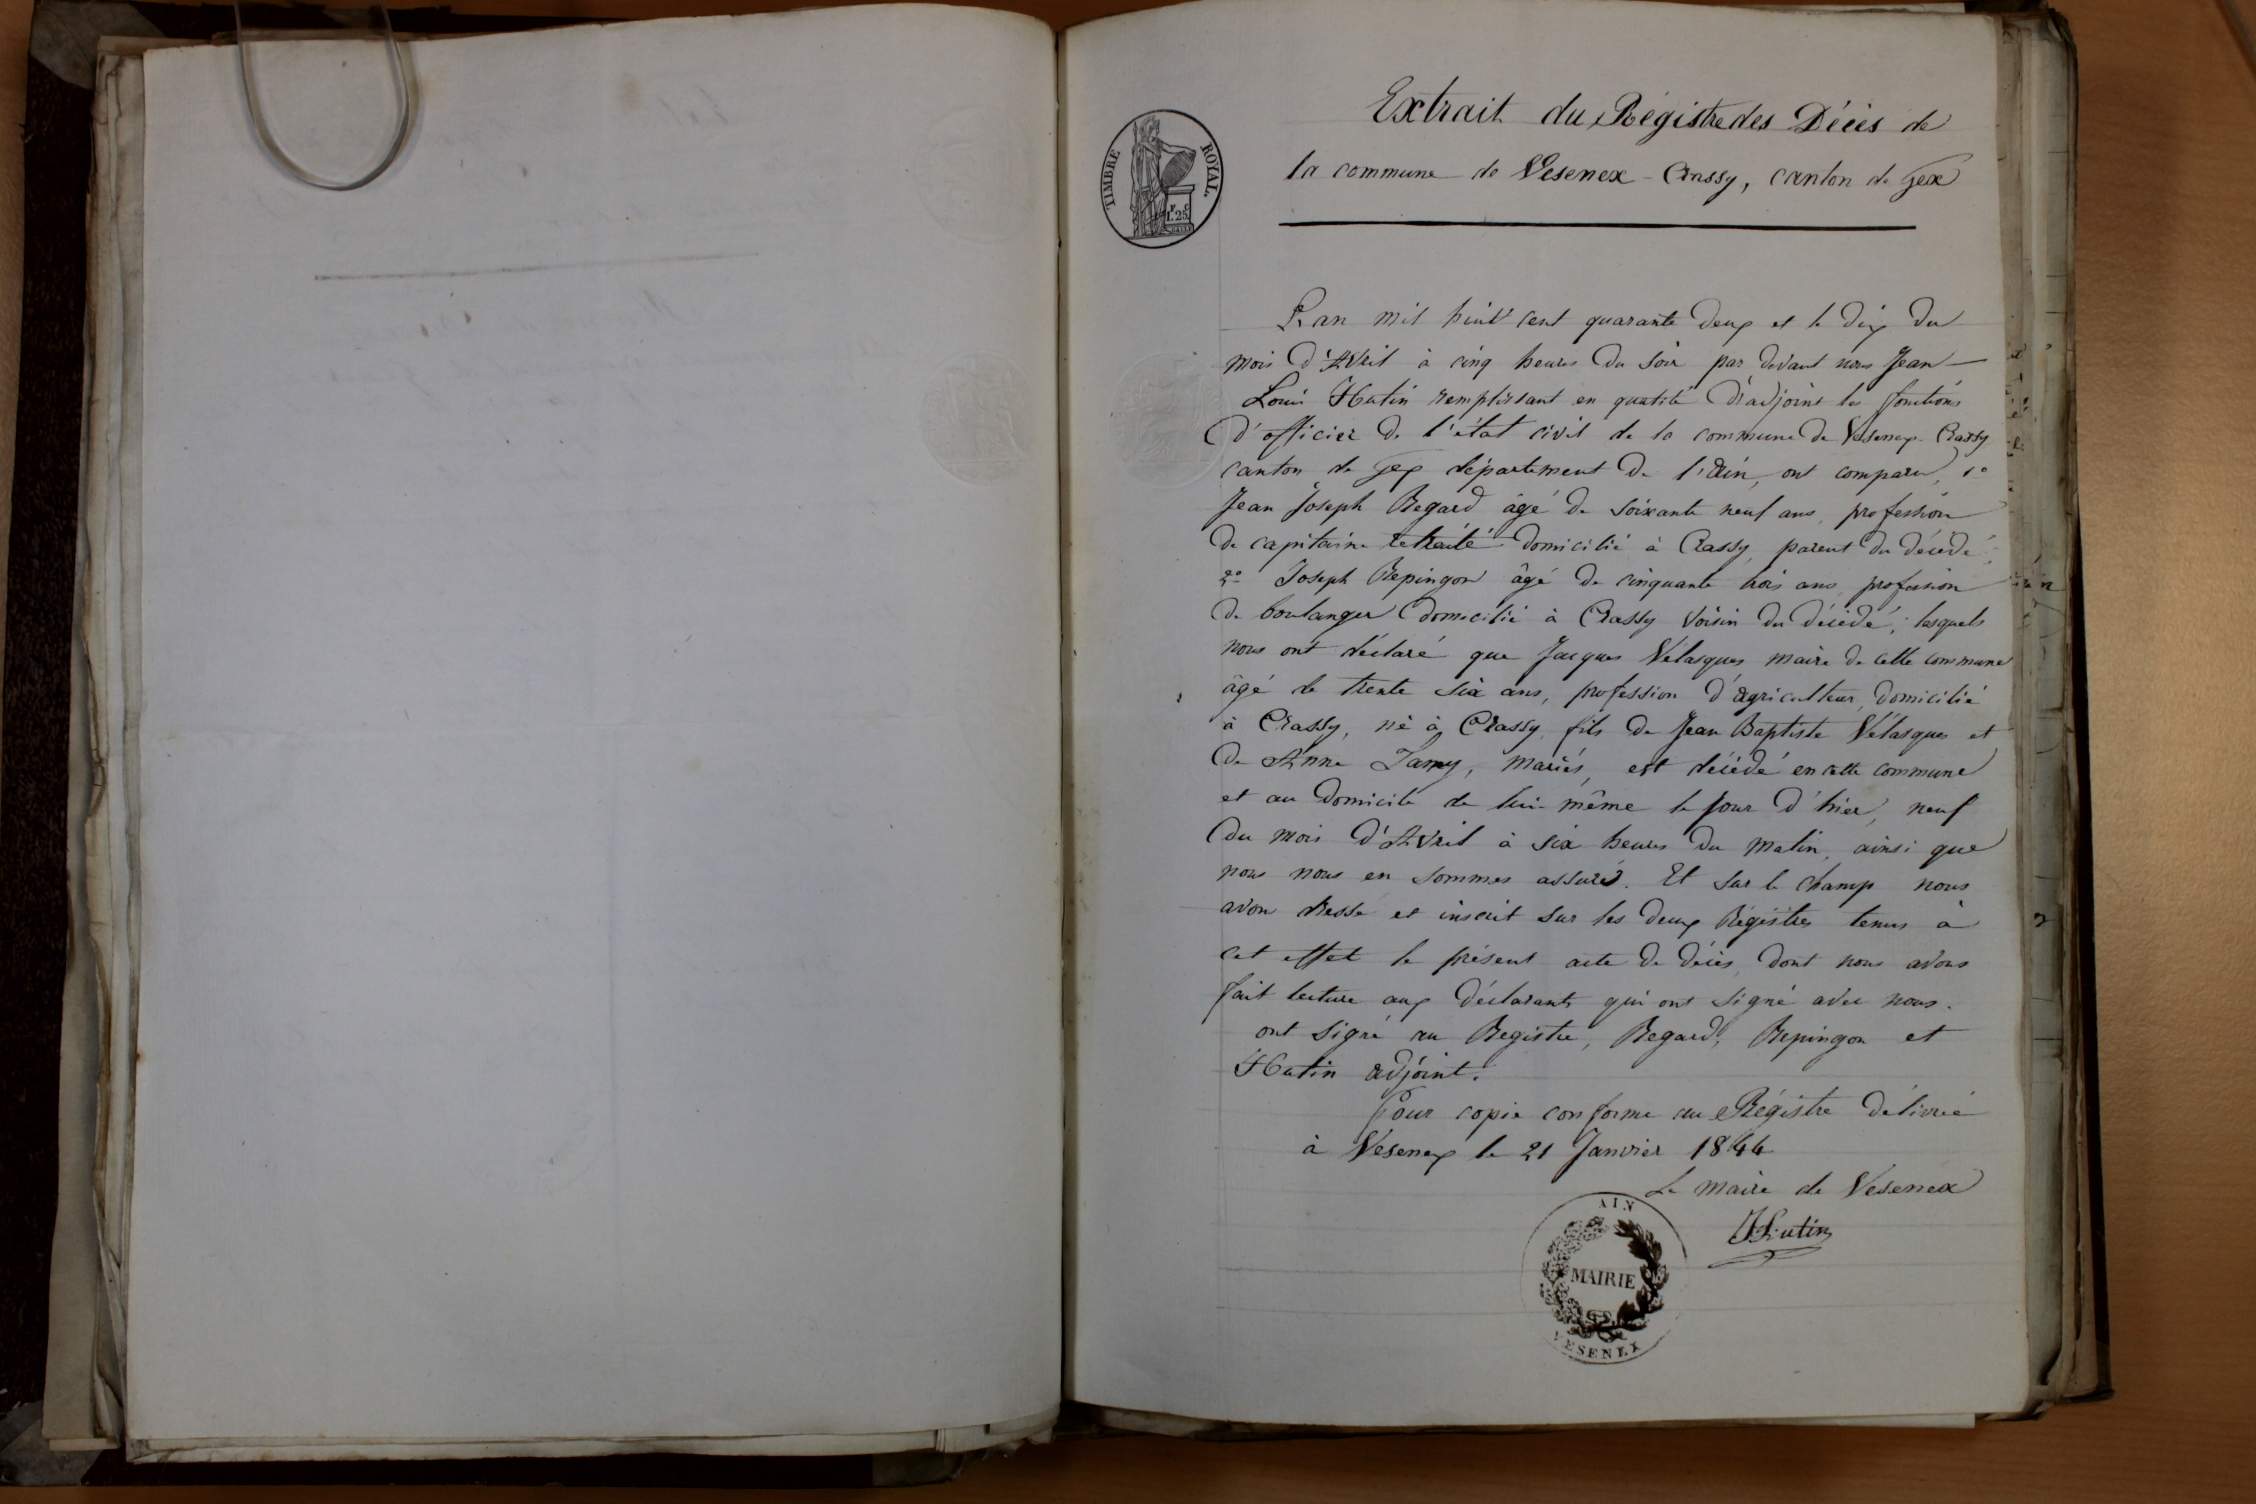 Extrait du Régistre des Décès de
la commune de Vesenex - Crassy, canton de Gex
TIMBRE ROYAL
1F.25C
L'an mil huit cent quarante deux et le dix du
mois d'Avril à cinq heures du soir par devant nous Jean
Louis Hutin remplissant en qualité d'adjoint les fonctions
d'officier de l'état civil de la commune de Vesenex Crassy
canton de Gex département de l'Ain, ont comparu, 1°
Jean Joseph Regard âgé de soixante neuf ans, profession
de capitaine retraité domicilié à Crassy, parent du décédé,
2° Joseph Repingon âgé de cinquante trois ans, profession
de boulanger domicilié à Crassy voisin du décédé; lesquels
nous ont déclaré que Jacques Vélasques maire de cette commune
âgé de trente six ans, profession d'agriculteur, domicilié
à Crassy, né à Crassy, fils de Jean Baptiste Vélasques et
de Anne, mariés, est décédé en cette commune
et au domicile de lui-même le jour d'hier, neuf
du mois d'Avril à six heures du matin, ainsi que
nous nous en sommes assuré. Et sur le champ nous
avon dressé et inscrit sur les deux Régistres tenus à
cet effet le présent acte de décès dont nous avons
fait lecture aux déclarants qui ont signé avec nous.
ont signé au Registre, Regard, Repingon et
Hutin adjoint.
Pour copie conforme au Régistre délivrée
à Vésenex le 21 Janvier 1844
Le maire de Vesenex
Hutin
AIN
MAIRIE
VESENEX